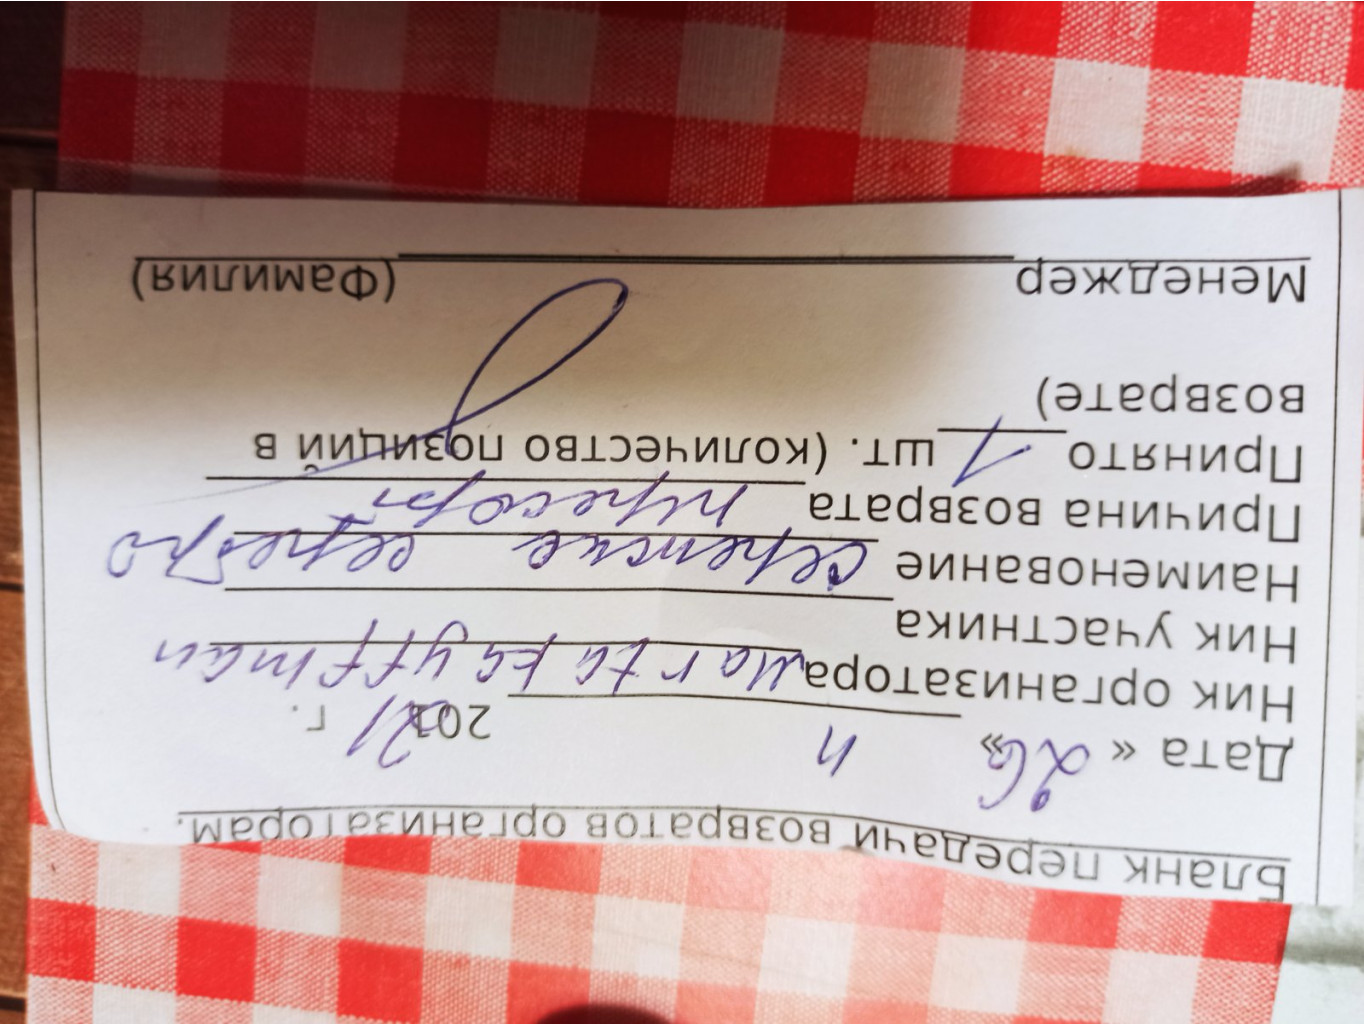 Бланк передачи возвратов организаторам.
Дата « 26 » 2021 г.
Ник организатора Marta Kauffman
Ник участника
Наименование сережки серебро
Причина возврата пересорт
Принято 1 шт. (количество позиций в
возврате)
Менеджер (Фамилия)